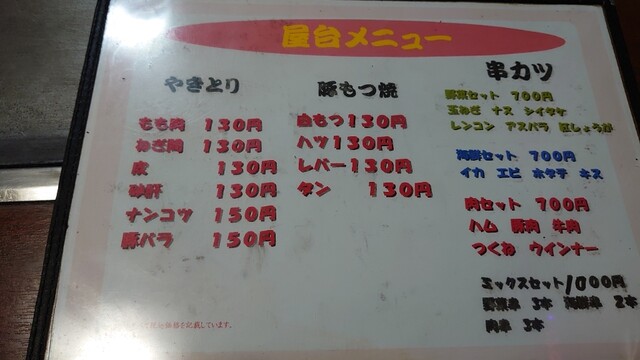 屋台メニュー
やきとり
もも肉 130円
ねぎ間 130円
皮 130円
砂肝 130円
ナンコツ 150円
豚バラ 150円
豚もつ焼
もつ130円
ハツ130円
レバー130円
タン 130円
串カツ
野菜セット 700円
玉ねぎ ナス シイタケ
レンコン アスパラ 紅しょうが
海鮮セット 700円
イカ エビ ホタテ キス
肉セット 700円
ハム 豚肉 牛肉
つくね ウインナー
ミックスセット/1000円
野菜串 3本 海鮮串 2本
肉串 3本
価格を記載しています。